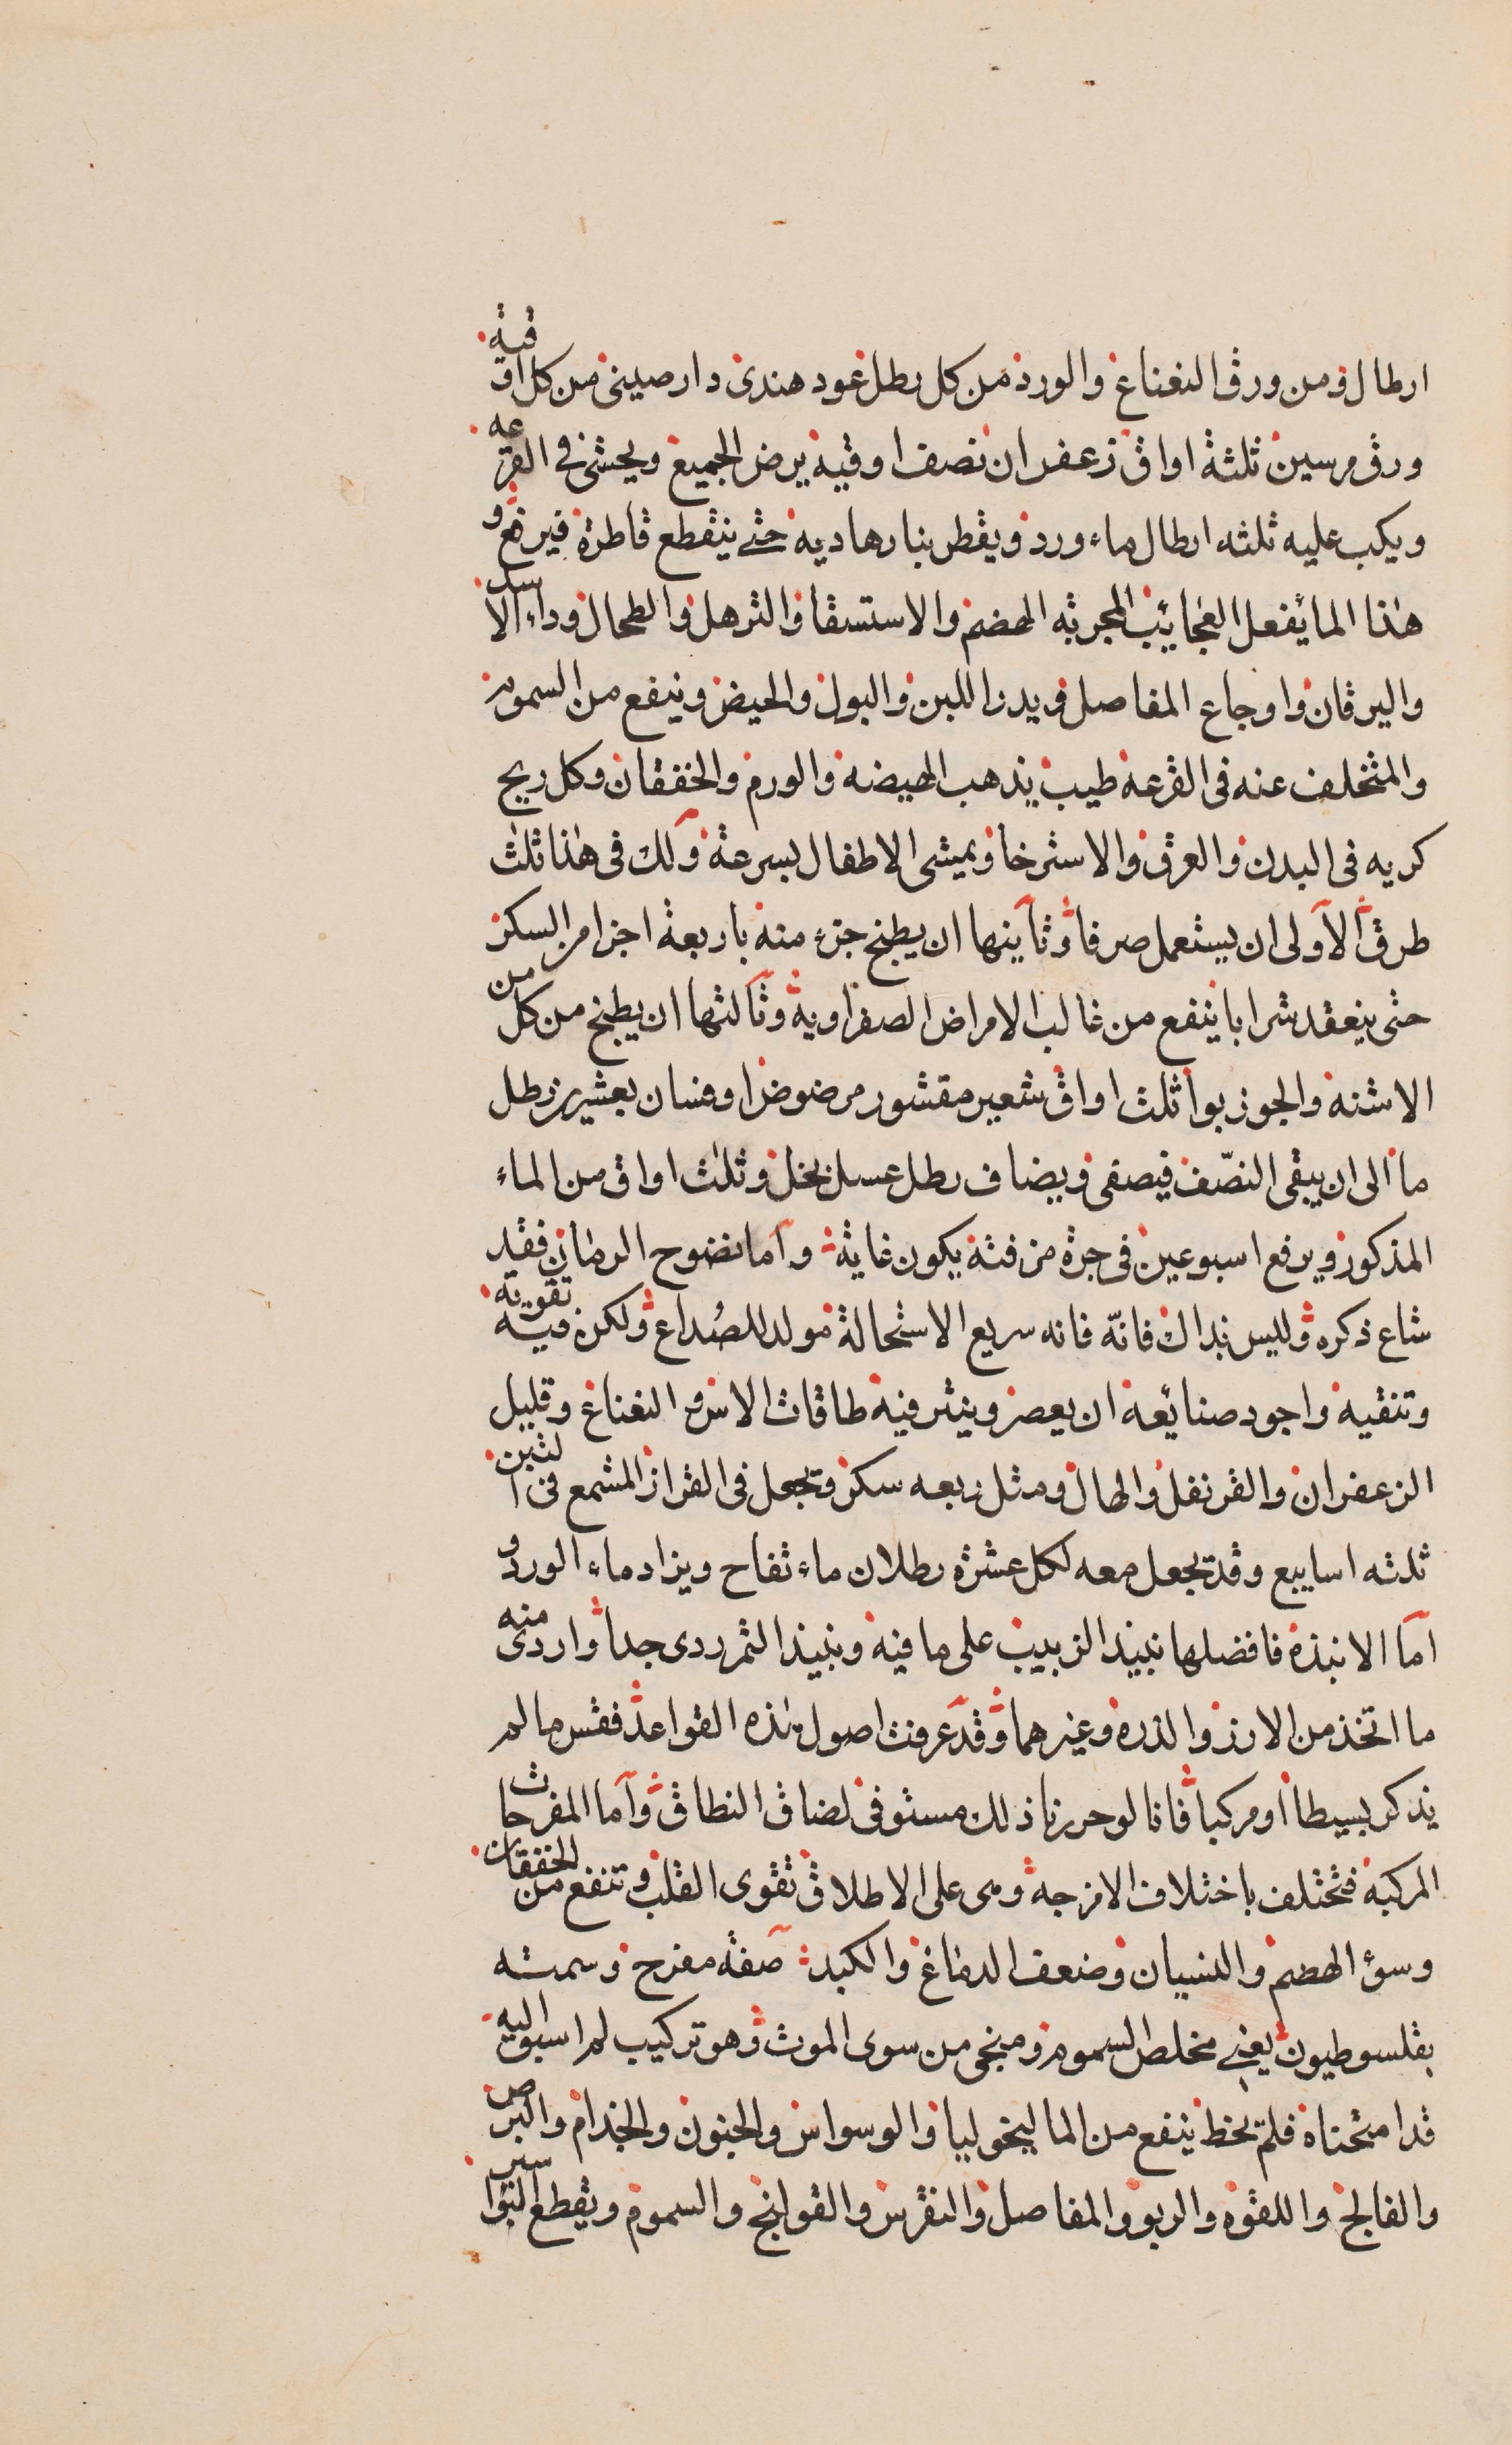 ارطال ومن ورق النعناع والورد من كل رطل عود هندى دارصينى من كل اوقية
ورق مرسين ثلثة اواق زعفران نصف اوقية يرض الجميع ويحشى فى القرعه
ويكب عليه ثلثه ارطال ماء ورد ويقطر بنار هاديه حتى ينقطع قاطرة فيرفع و
هذا الما يفعل العجائب المجربه الهضم والاستسقا والترهل والطحال وداء الاسد
واليرقان واوجاع المفاصل ويدر اللبن والبول والحيض وينفع من السموم
والمتخلف عنه فى القرعة طيب يذهب الهيضه والورم والخفقان وكل ريح
كريه فى البدن والعرق والاسترخا ويمشى الاطفال بسرعة ولك فى هذا ثلث
طرق الاولى ان يستعمل صرفا وثانيها ان يطبخ جزء منه باربعة اجزا من السكر
حتى ينعقد شرابا ينفع من غالب الامراض الصفراوية وثالثها ان يطبخ من كل من
الاشنه والجوزبوا ثلث اواق شعير مقشور مرضوض اوقسان بعشرين رطل
ما الى ان يبقى النصّف فيصفى ويضاف رطل عسل نحل وثلث اواق من الماء
المذكور ويرفع اسبوعين فى جرة مزفتة يكون غاية واما نضوح الرمان فقد
شاع ذكره وليس بذاك فانّه فانه سريع الاستحالة مولد للصُداع ولكن فيه تقوية
وتنقيه واجود صنائعة ان يعصر وينثر فيه طاقات الاس والنعناع وقليل
الزعفران والقرنفل والهال ومثل ربعه سكر وتجعل فى القزاز المشمع فى التبن
ثلثه اسابيع وقد تجعل معه لكل عشرة رطلان ماء تفاح ويزاد ماء الورد و
اما الانبذة فافضلها نبيذ الزبيب على ما فيه ونبيذ التمر ردى جدا واردى منه
ما اتخذ من الارز والذرة وغيرهما وقد عرفت اصول هذه القواعد فقس ما لم
يذكر بسيطا او مركبا فانا لو حررنا ذلك مستوفى لضاق النطاق واما المفرحات
المركبة فتختلف باختلاف الامزجة وهى على الاطلاق تقوى القلب وتنفع من الخفقان
وسؤ الهضم والنسيان وضعف الدماغ والكبد صفة مفرح وسمته
بقلسوطيون يعنى مخلص السموم ومنجى من سوى الموت وهو تركيب لم اسبق اليه
قد امتحناه فلم يخط ينفع من الماليخوليا والوسواس والجنون والجذام والبرص
والفالج واللقوة والربو والمفاصل والنقرس والقولنج والسموم ويقطع البواسير